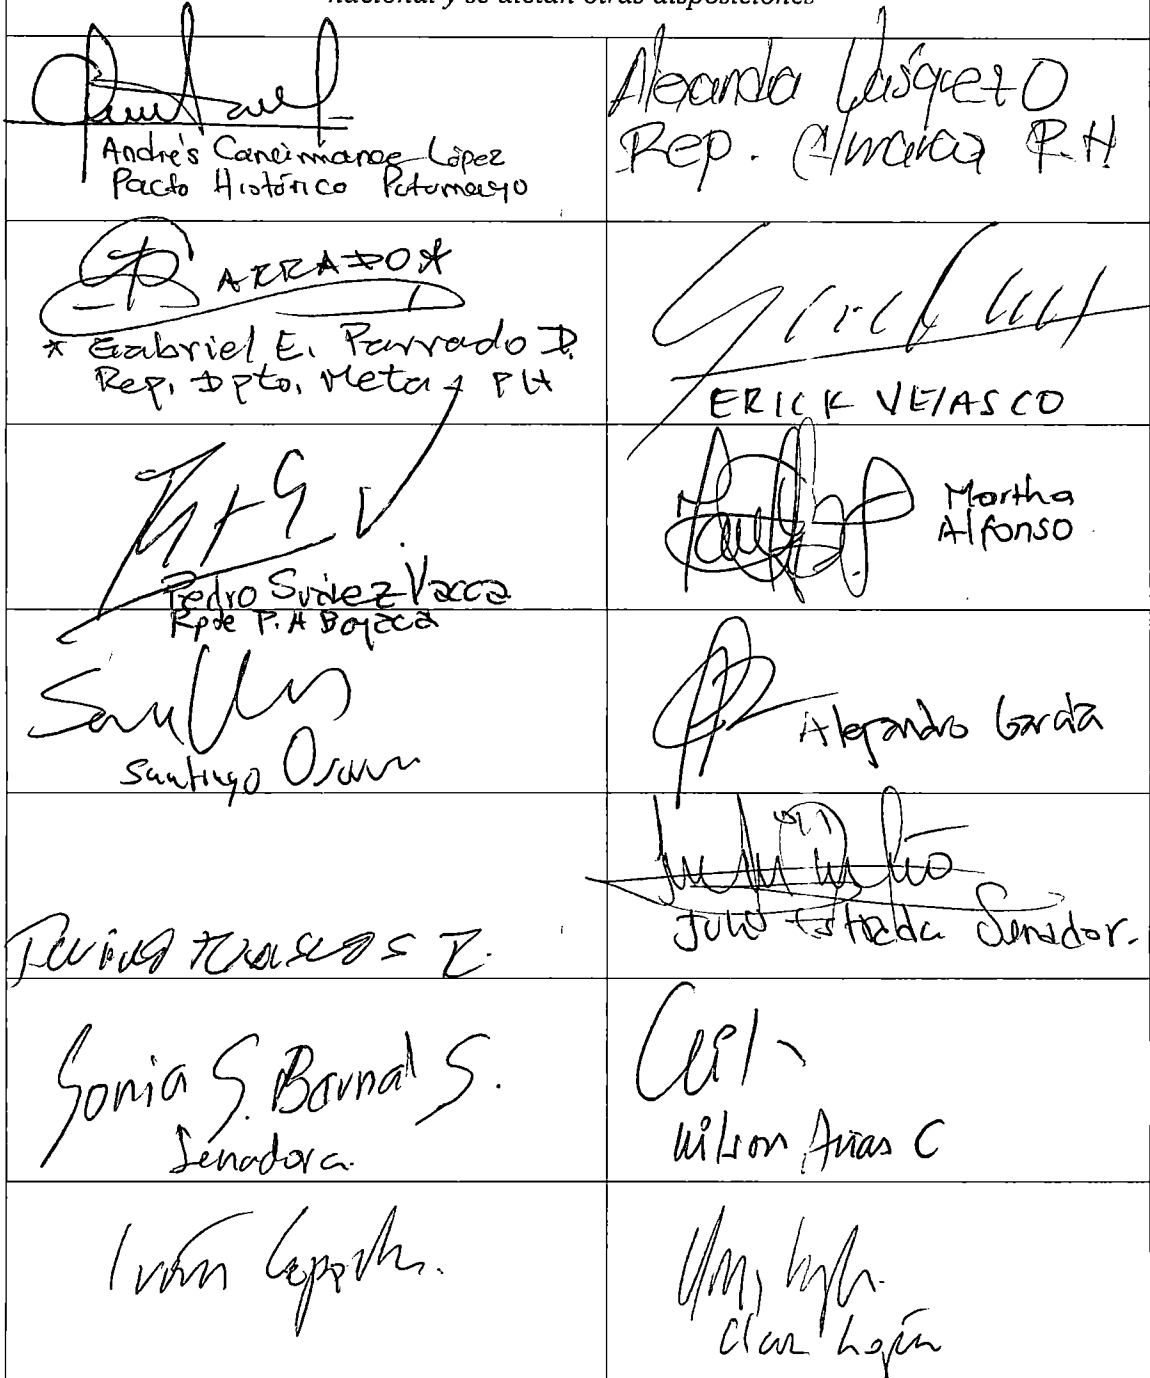 nacional y se dictan otras disposiciones
Andrés Cancimance López
Pacto Histórico Putumayo
Alexandra Vásquez O
Rep. C/marca P.H
PARRADO*
* Gabriel E. Parrado D.
Rep. Dpto. Meta - PH
ERICK VELASCO
Pedro Suárez Vacca
Rpte P.H Boyacá
Martha
Alfonso
Santiago Osorio
Alejandro García
Julio Estrada Senador.
Sonia S. Bernal S.
Senadora.
Wilson Arias C
Iván Cepeda.
Clara López